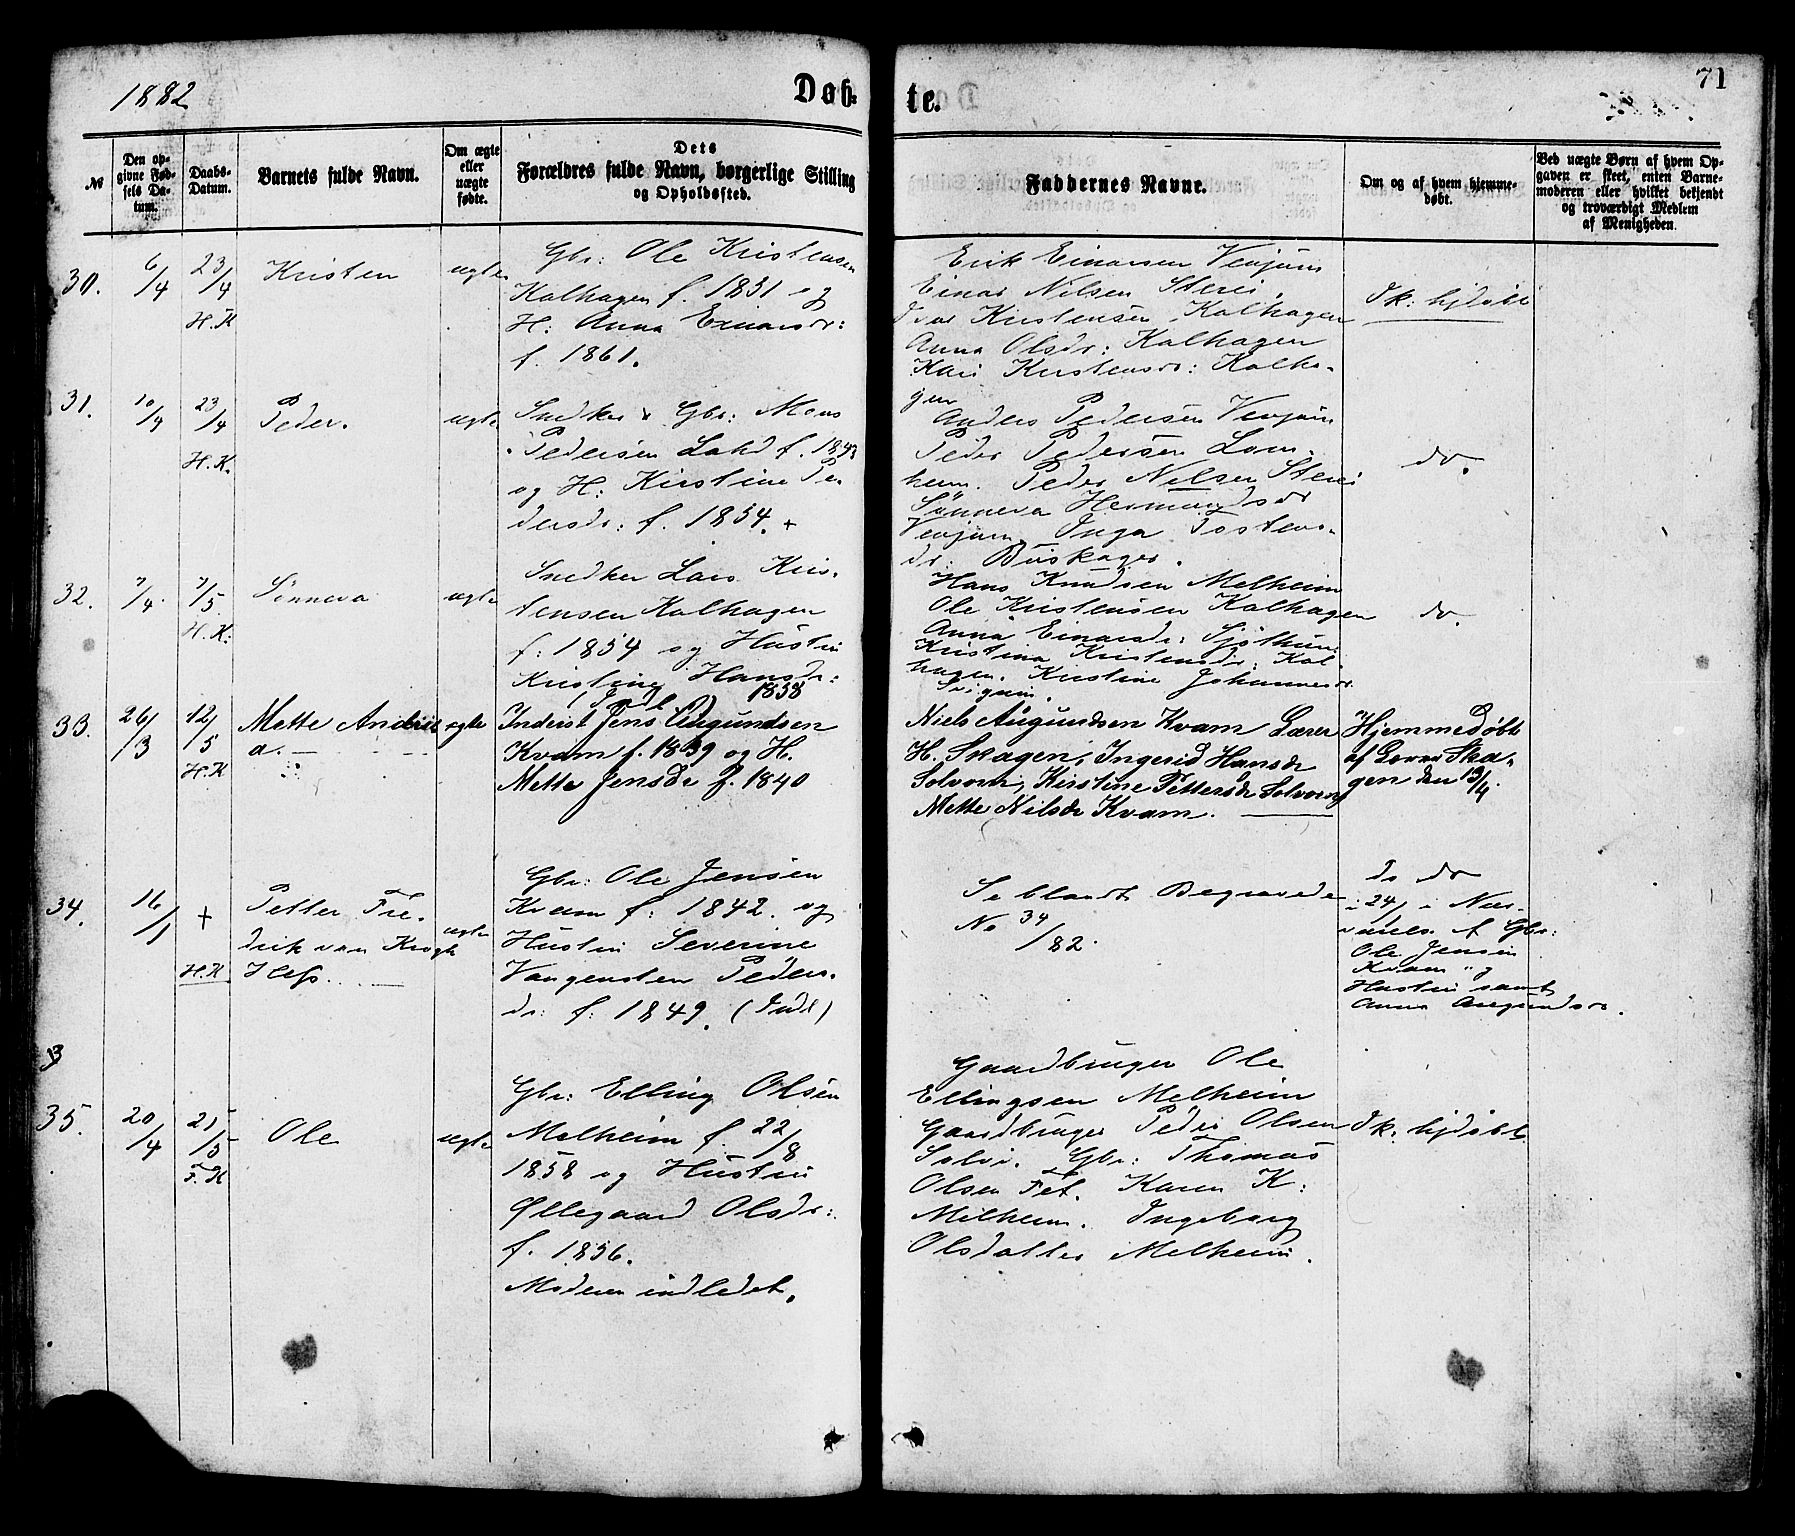 1882
Døb-
te.
71
№
Den op-
givne Fød-
sels Da-
tum.
Daabs-
Datum.
Barnets fulde Navn.
Om ægte
eller
uægte
fødte.
Dets
Forældres fulde Navn, borgerlige Stilling
og Opholdssted.
Faddernes Navne.
Om og af hvem hjemme-
døbt.
Ved uægte Børn af hvem Op-
gaven er skeet, enten Barne-
moderen eller hvilket bekjendt
og troværdigt Medlem
af Menigheden.
30.
6/4
23/4
H.K
Kristen
ægte
Gbr: Ole Kristensen
Kalhagen f. 1831 og
H: Anna Einarsdr:
f. 1861.
Erik Einarsen Venjum
Einar Nilsen Sterei,
Ivar Kristensen Kalhagen
Anna Olsdr: Kalhagen
Kari Kristensdr: Kalha-
gen
Ik: hjdøbt
31.
10/4
23/4
H.K.
Peder.
ægte
Snedker & Gbr: Mons
Pedersen Lahd f. 1843
og H: Kirstine Pe
dersdr: f. 1854. +
Anders Pedersen Venjum
Peder Pedersen Lom-
heim. Peder Nilsen Sterei
Sønneva Hermundsdr
Venjum Inga Tostens-
dr: Buskager.
do.
32.
7/4.
7/5
H.K:
Sønneva
ægte
Snedker Lars Kris-
tensen Kalhagen
f: 1854 og Hustru
Kristine Hansdr:
1858
Hans Knudsen Melheim
Ole Kristensen Kalhagen
Anna Einarsdr: Sjøthun
Kristina Kristensdr: Kal
hagen. Kirstine Johannesdr
Svignin.
do.
33.
26/3
12/5
H.K
Mette Andrie
a.
ægte
Inderst Jens Augundsen
Kvam f. 1839 og H.
Mette Jensdr f. 1840
Niels Augundsen Kvam Lærer
H. Skagen, Ingerid Hansdr
Solvorn, Kirstine Pettersdr Solvorn
Mette Nilsdr Kvam.
Hjemmedøbt
af Lærer Ska-
gen den 13/4.
34.
16/1
+
H.K
Petter Fre-
drik van Krogh
Hess.
ægte
Gbr: Ole Jensen
Kvam f: 1842. og
Hustru Severine
Vangensten Peders-
dr: f: 1849. (Død)
Se blandt Begravede
No 34/82.
do do
24/1 i Nær-
værels. af Gbr:
Ole Jensen
Kvam og
Hustru samt
Anna Augundsdr.
3
35.
20/4
25/5
F.K
Ole
ægte
Gbr: Elling Olsen
Melheim f. 22/8
1858 og Hustru
Øllegaard Olsdr:
f. 1856.
Moderen indledet.
Gaardbruger Ole
Ellingsen Melheim
Gaardbruger Peder Olsen
Solvi. Gbr: Thomas
Olsen Fet. Karen K:
Melheim. Ingeborg
Olsdatter Melheim.
Ik: hjdøbt